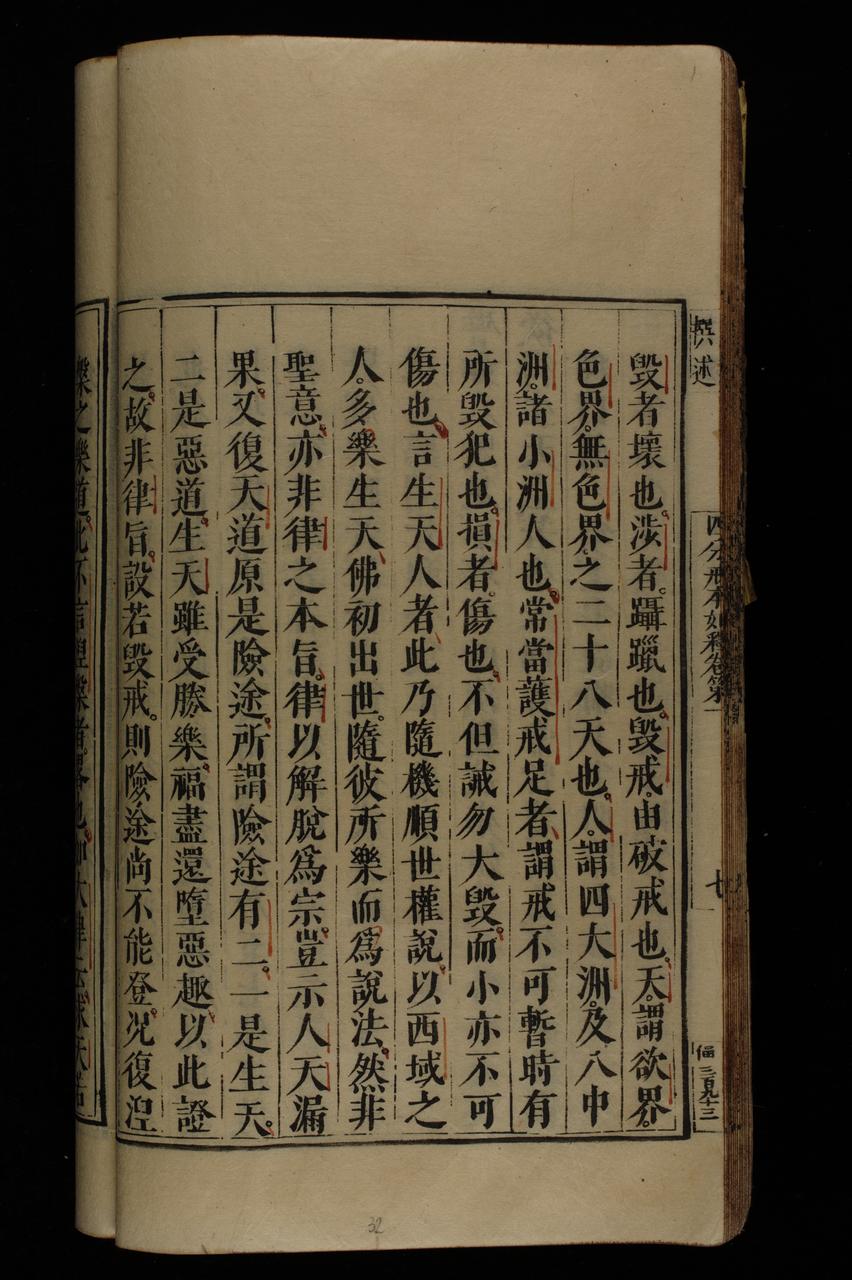 撰述
四分戒本如釋卷第一
七
三百九十三
毀者壞也涉者躡躐也毀戒由破戒也天謂欲界
色界無色界之二十八天也人謂四大洲及八中
洲諸小洲人也常當護戒足者謂戒不可暫時有
所毀犯也損者傷也不但誡勿大毀而小亦不可
傷也言生天人者此乃隨機順世權說以西域之
人多樂生天佛初出世隨彼所樂而為說法然非
聖意亦非律之本旨律以解脫為宗豈示人天漏
果又復天道原是險途所謂險途有二一是生天
二是惡道生天雖受勝樂福盡還墮惡趣以此證
之故非律旨設若毀戒則險途尚不能登况復湼
槃之樂道此不言湼槃者畧也
32